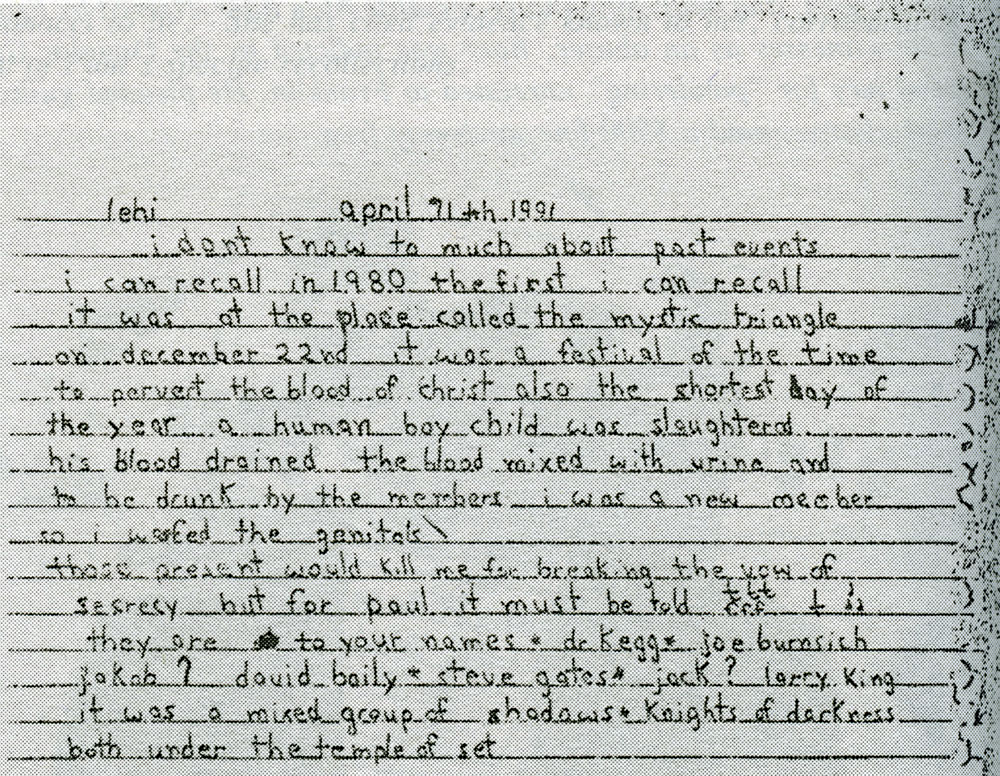 lehi april 91th 1991
i dont know to much about past events
i can recall in 1980 the first i can recall
it was at the place called the mystic triangle
on december 22nd it was a festival of the time
to pervert the blood of christ also the shortest day of
the year a human boy child was slaughterd
his blood drained the blood mixed with urine and
to be drunk by the members i was a new member
so i the genitals
those present would kill me for breaking the vow of
secresy but for paul it must be told
they are to your names * dr kegg * joe burnsich
jakob ? david baily * steve gates * jack ? larry king
it was a mixed group of shadows * knights of darkness
both under the temple of set